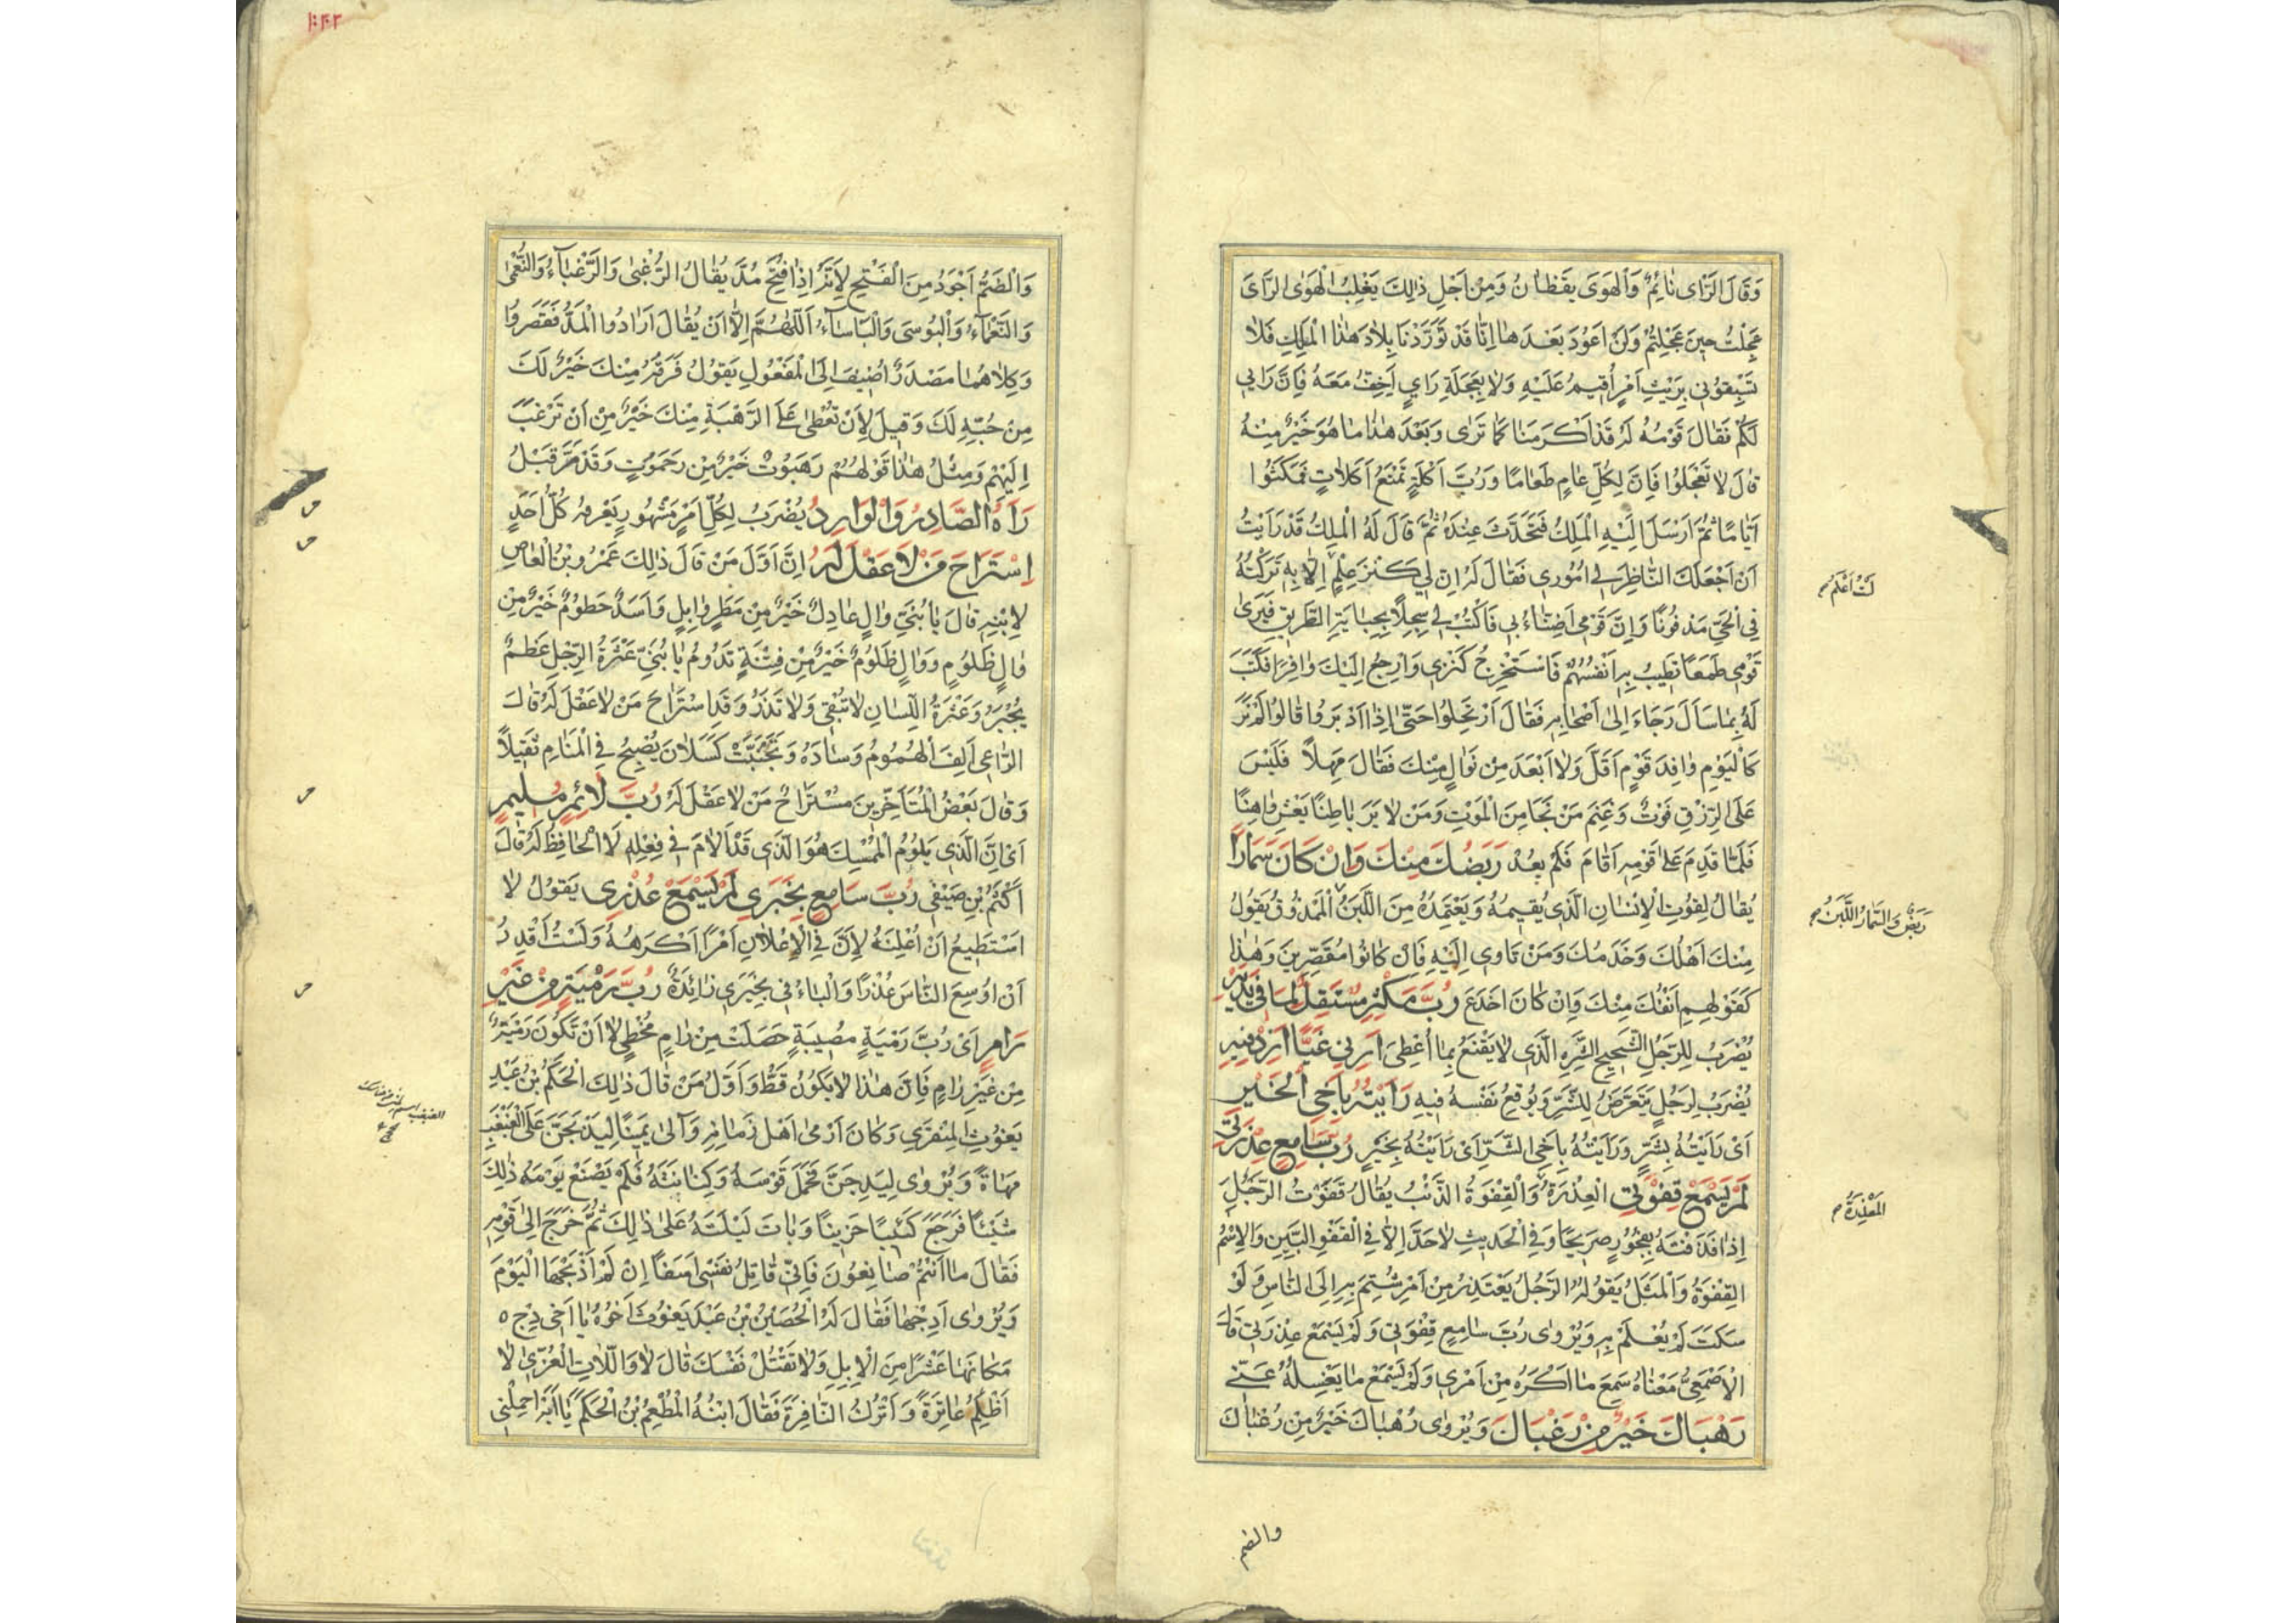 وَقَالَ الرَّاى نَائِمٌ وَالْهَوَى يَقَظَانُ وَمِنْ اَجْلِ ذٰلِكَ يَغْلِبُ الْهَوَى الرَّاىَ
عَجِلْتُ حِينَ عَجِلْتُمْ وَلَنْ اَعُودَ بَعْدَهَا اِنَّا قَدْ تَوَرَّدْنَا بِلَادَ هٰذَا الْمَلِكِ فَلَا
تَسْبِقُونِى بِرَيْثِ اَمْرٍ اُقِيمُ عَلَيْهِ وَلَا بِعَجَلَةِ رَايٍ اَخِفُّ مَعَهُ فَاِنَّ رَايِى
لَكُمْ فَقَالَ قَوْمُهُ لَهُ قَدْ اَكْرَمَنَا كَمَا تَرٰى وَبَعْدَ هٰذَا مَا هُوَ خَيْرٌ مِنْهُ
قَالَ لَا تَعْجَلُوا فَاِنَّ لِكُلِّ عَامٍ طَعَامًا وَرُبَّ اَكْلَةٍ تَمْنَعُ اَكَلَاتٍ فَمَكَثُوا
اَيَّامًا ثُمَّ اَرْسَلَ اِلَيْهِ الْمَلِكُ فَتَحَدَّثَ عِنْدَهُ ثُمَّ قَالَ لَهُ الْمَلِكُ قَدْ رَاَيْتُ
اَنْ اَجْعَلَكَ النَّاظِرَ فِى اُمُورِى فَقَالَ لَهُ اِنَّ لِى كَنْزَ عِلْمٍ اِلَّا بِهِ تَرَكْتُهُ
فِى الْحَىِّ مَدْفُونًا وَاِنَّ قَوْمِى اَضِنَّاءُ بِى فَاكْتُبْ لِى سِجِلًّا بِجِبَايَةِ الطَّرِيقِ فَيَرٰى
قَوْمِى طَمَعًا تَطِيبُ بِهِ اَنْفُسُهُمْ فَاَسْتَخْرِجُ كَنْزِى وَارْجِعُ اِلَيْكَ وَافِرًا فَكَتَبَ
لَهُ بِمَا سَاَلَ وَجَاءَ اِلٰى اَصْحَابِهِ فَقَالَ ارْتَحِلُوا حَتّٰى اِذَا اَدْبَرُوا قَالُوا لَمْ نَرَ
كَالْيَوْمِ وَافِدَ قَوْمٍ اَقَلَّ وَلَا اَبْعَدَ مِنْ نَوَالٍ مِنْكَ فَقَالَ مَهْلًا فَلَيْسَ
عَلَى الرِّزْقِ فَوْتٌ وَغَنِمَ مَنْ نَجَا مِنَ الْمَوْتِ وَمَنْ لَا يَرَ بَاطِنًا يَعْشِ وَاهِنًا
فَلَمَّا قَدِمَ عَلَى قَوْمِهِ اَقَامَ فَلَمْ يَعُدْ رَبَضُكَ مِنْكَ وَاِنْ كَانَ سَمَارًا
يُقَالُ لِقُوتِ الْاِنْسَانِ الَّذِى يُقِيمُهُ وَيَعْتَمِدُهُ مِنَ اللَّبَنِ الْمَمْذُوقُ يَقُولُ
مِنْكَ اَهْلُكَ وَخَدَمُكَ وَمَنْ تَاوِى اِلَيْهِ فَاِنْ كَانُوا مُقَصِّرِينَ وَهٰذَا
كَقَوْلِهِمِ اَنْفُكَ مِنْكَ وَاِنْ كَانَ اَجْدَعَ رُبَّ مُكْثِرٍ مُسْتَقِلٌّ لِمَا فِى يَدَيْهِ
يُضْرَبُ لِلرَّجُلِ الشَّحِيحِ الشَّرِهِ الَّذِى لَا يَقْنَعُ بِمَا اُعْطِىَ اَرِنِى غَيًّا اَزِدْ فِيهِ
يُضْرَبُ لِرَجُلٍ يَتَعَرَّضُ لِلشَّرِّ وَيُوقِعُ نَفْسَهُ فِيهِ رَاَيْتُهُ بِاَخِى الْخَيْرِ
اَىْ رَاَيْتُهُ بِشَرٍّ وَرَاَيْتُهُ بِاَخِى الشَّرِّ اَىْ رَاَيْتُهُ بِخَيْرٍ رُبَّ سَامِعٍ عِذْرَتِى
لَمْ يَسْمَعْ قِفْوَتِى الْعِذْرَةُ وَالْقِفْوَةُ الذَّنْبُ يُقَالُ قَفَوْتُ الرَّجُلَ
اِذَا قَذَفْتَهُ بِفُجُورٍ صَرِيحًا وَفِى الْحَدِيثِ لَا حَدَّ اِلَّا فِى الْقَفْوِ الْبَيِّنِ وَالْاِسْمُ
الْقِفْوَةُ وَالْمَثَلُ يَقُولُهُ الرَّجُلُ يَعْتَذِرُ مِنْ اَمْرٍ شُتِمَ بِهِ اِلَى النَّاسِ وَلَوْ
سَكَتَ لَمْ يُعْلَمْ بِهِ وَيُرْوٰى رُبَّ سَامِعٍ قِفْوَتِى وَلَمْ يَسْمَعْ عِذْرَتِى قَالَ
الْاَصْمَعِىُّ مَعْنَاهُ سَمِعَ مَا اَكْرَهُ مِنْ اَمْرِى وَلَمْ يَسْمَعْ مَا يَغْسِلُهُ عَنِّى
رَهْبَاكَ خَيْرٌ مِنْ رَغْبَاكَ وَيُرْوٰى رُهْبَاكَ خَيْرٌ مِنْ رُغْبَاكَ
والضم
لَسْتُ اَعْلَمُ
رَبَضٌ وَالسَّمَارُ اللَّبَنُ
الْمَعْذِرَةُ
وَالضَّمُّ اَجْوَدُ مِنَ الْفَتْحِ لِاَنَّهُ اِذَا فُتِحَ مُدَّ يُقَالُ الرُّغْبٰى وَالرَّغْبَاءُ وَالنُّعْمٰى
وَالنَّعْمَاءُ وَالْبُوسَى وَالْبَاسَاءُ اَللّٰهُمَّ اِلَّا اَنْ يُقَالَ اَرَادُوا الْمَدَّ فَقَصَرُوا
وَكِلَاهُمَا مَصْدَرٌ اُضِيفَ اِلَى الْمَفْعُولِ يَقُولُ فَرَقُهُ مِنْكَ خَيْرٌ لَكَ
مِنْ حُبِّهِ لَكَ وَقِيلَ لِاَنْ تُعْطٰى عَلَى الرَّهْبَةِ مِنْكَ خَيْرٌ مِنْ اَنْ تَرْغَبَ
اِلَيْهِمْ وَمِثْلُ هٰذَا قَوْلُهُمْ رَهَبُوتٌ خَيْرٌ مِنْ رَحَمُوتٍ وَقَدْ مَرَّ قَبْلُ
رَآهُ الصَّادِرُ وَالْوَارِدُ يُضْرَبُ لِكُلِّ اَمْرٍ مَشْهُورٍ يَعْرِفُهُ كُلُّ اَحَدٍ
اِسْتَرَاحَ مَنْ لَا عَقْلَ لَهُ اِنَّ اَوَّلَ مَنْ قَالَ ذٰلِكَ عَمْرُو بْنُ الْعَاصِ
لِابْنِهِ قَالَ يَا بُنَىَّ وَالٍ عَادِلٌ خَيْرٌ مِنْ مَطَرٍ وَابِلٍ وَاَسَدٌ حَطُومٌ خَيْرٌ مِنْ
وَالٍ ظَلُومٍ وَوَالٍ ظَلُومٌ خَيْرٌ مِنْ فِتْنَةٍ تَدُومُ يَا بُنَىَّ عَثْرَةُ الرِّجْلِ عَظْمٌ
يُجْبَرُ وَعَثْرَةُ اللِّسَانِ لَا تُبْقِى وَلَا تَذَرُ وَقَدِ اسْتَرَاحَ مَنْ لَا عَقْلَ لَهُ قَالَ
الرَّاعِى اَلِفَ الْهُمُومُ وَسَادَهُ وَتَجَنَّبَتْ كَسْلَانَ يُصْبِحُ فِى الْمَنَامِ ثَقِيلًا
وَقَالَ بَعْضُ الْمُتَاَخِّرِينَ مُسْتَرَاحٌ مَنْ لَا عَقْلَ لَهُ رُبَّ لَائِمٍ مُلِيمٍ
اَىْ اِنَّ الَّذِى يَلُومُ الْمُمْسِكَ هُوَ الَّذِى قَدْ اَلَامَ فِى فِعْلِهِ لَا الْحَافِظُ لَهُ قَالَ
اَكْثَمُ بْنِ صَيْفِى رُبَّ سَامِعٍ بِخَبَرِى لَمْ يَسْمَعْ عُذْرِى يَقُولُ لَا
اَسْتَطِيعُ اَنْ اُعْلِنَهُ لِاَنَّ فِى الْاِعْلَانِ اَمْرًا اَكْرَهُهُ وَلَسْتُ اَقْدِرُ
اَنْ اُوسِعَ النَّاسَ عُذْرًا وَالْبَاءُ فِى بِخَبَرِى زَائِدَةٌ رُبَّ رَمْيَةٍ مِنْ غَيْرِ
رَامٍ اَىْ رُبَّ رَمْيَةٍ مُصِيبَةٍ حَصَلَتْ مِنْ رَامٍ مُخْطِئٍ لَا اَنْ تَكُونَ رَمْيَةٌ
مِنْ غَيْرِ رَامٍ فَاِنَّ هٰذَا لَا يَكُونُ قَطُّ وَاَوَّلُ مَنْ قَالَ ذٰلِكَ الْحَكَمُ بْنُ عَبْدِ
يَغُوثَ الْمِنْقَرِى وَكَانَ اَرْمٰى اَهْلِ زَمَانِهِ وَآلٰى يَمِينًا لَيَذْبَحَنَّ عَلَى الْغَبْغَبِ
مَهَاةً وَيُرْوٰى لَيَدِجَنَّ فَحَمَلَ قَوْسَهُ وَكِنَانَتَهُ فَلَمْ يَصْنَعْ يَوْمَهُ ذٰلِكَ
شَيْئًا فَرَجَعَ كَئِيبًا حَزِينًا وَبَاتَ لَيْلَتَهُ عَلٰى ذٰلِكَ ثُمَّ خَرَجَ اِلٰى قَوْمِهِ
فَقَالَ مَا اَنْتُمْ صَانِعُونَ فَاِنِّى قَاتِلٌ نَفْسِى اَسَفًا اِنْ لَمْ اَذْبَحْهَا الْيَوْمَ
وَيُرْوٰى اَدِجْهَا فَقَالَ لَهُ الْحُصَيْنُ بْنُ عَبْدِ يَغُوثَ اَخُوهُ يَا اَخِى دِجْ ٥
مَكَانَهَا عَشْرًا مِنَ الْاِبِلِ وَلَا تَقْتُلْ نَفْسَكَ قَالَ لَا وَاللَّاتِ الْعُزّٰى لَا
اَظْلِمُ عَاتِرَةً وَاَتْرُكُ النَّافِرَةَ فَقَالَ ابْنُهُ الْمُطْعِمُ بْنُ الْحَكَمِ يَا اَبَهْ احْمِلْنِى